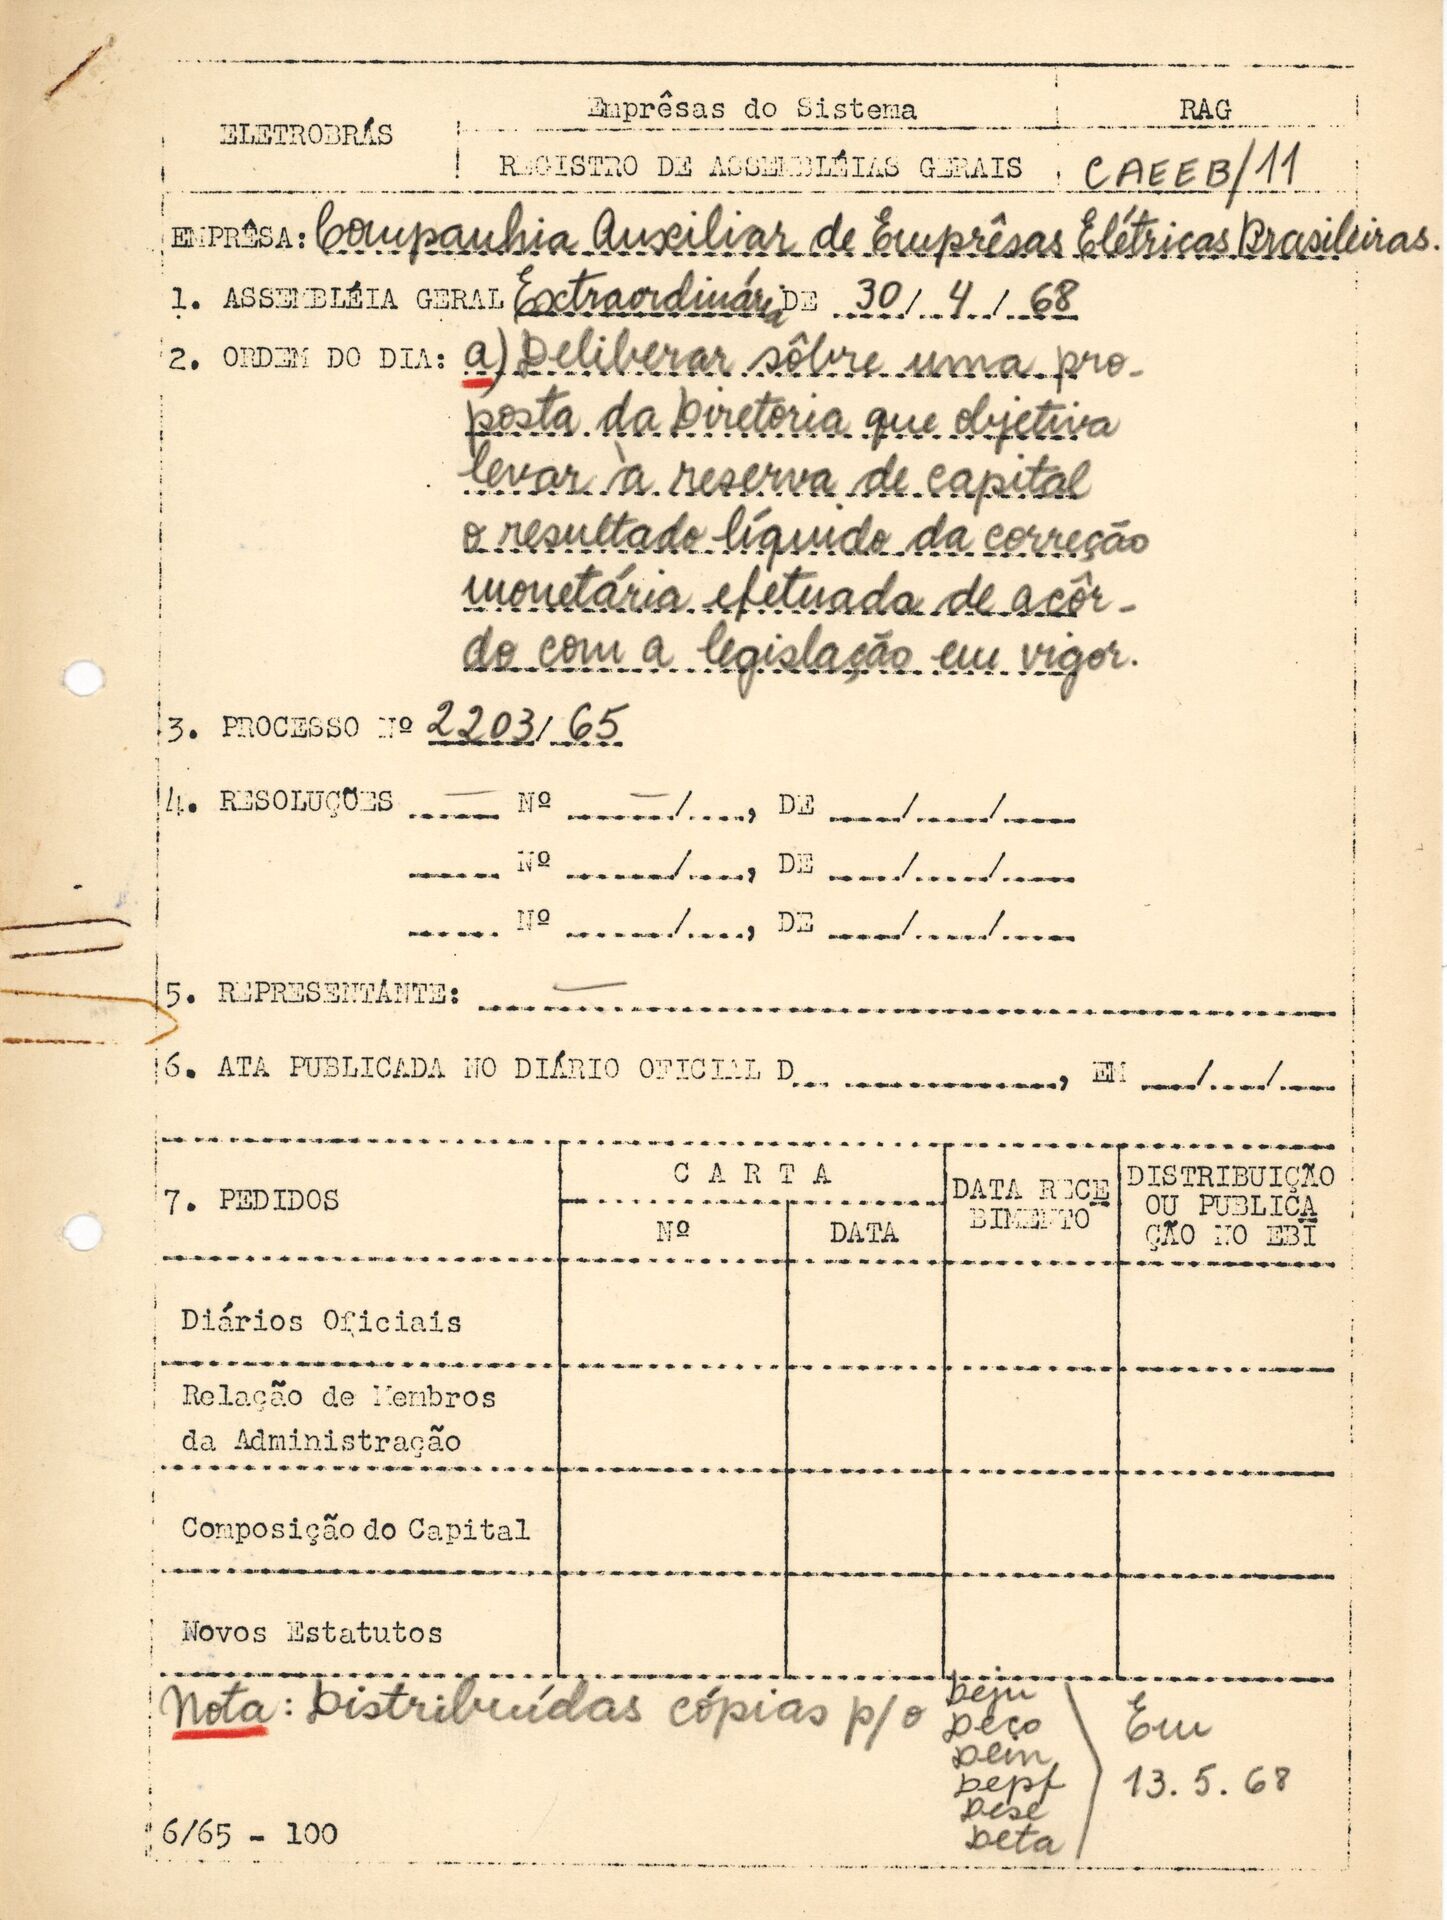 ELETROBRÁS
Emprêsas do Sistema
RAG
REGISTRO DE ASSEMBLÉIAS GERAIS
CAEEB/11
EMPRÊSA: Companhia Auxiliar de Emprêsas Elétricas Brasileiras.
1. ASSEMBLÉIA GERAL Extraordinária DE 30/4/68
2. ORDEM DO DIA: a) Deliberar sôbre uma pro-
posta da Diretoria que objetiva
levar à reserva de capital
o resultado líquido da correção
monetária efetuada de acôr-
do com a legislação em vigor.
3. PROCESSO Nº 2203/65
4. RESOLUÇÕES ..... — Nº ..... — /...., DE ..../..../....
..... Nº ....../...., DE ..../..../....
..... Nº ....../...., DE ..../..../....
5. REPRESENTANTE: —
6. ATA PUBLICADA NO DIÁRIO OFICIAL D... ............, EM ..../..../....
7. PEDIDOS
C A R T A
Nº
DATA
DATA RECE
BIMENTO
DISTRIBUIÇÃO
OU PUBLICA
ÇÃO NO EBI
Diários Oficiais
Relação de Membros
da Administração
Composição do Capital
Novos Estatutos
Nota: Distribuídas cópias p/o
Deju
Deço
Dein
Depf
Dese
Deta
Em
13.5.68
6/65 - 100